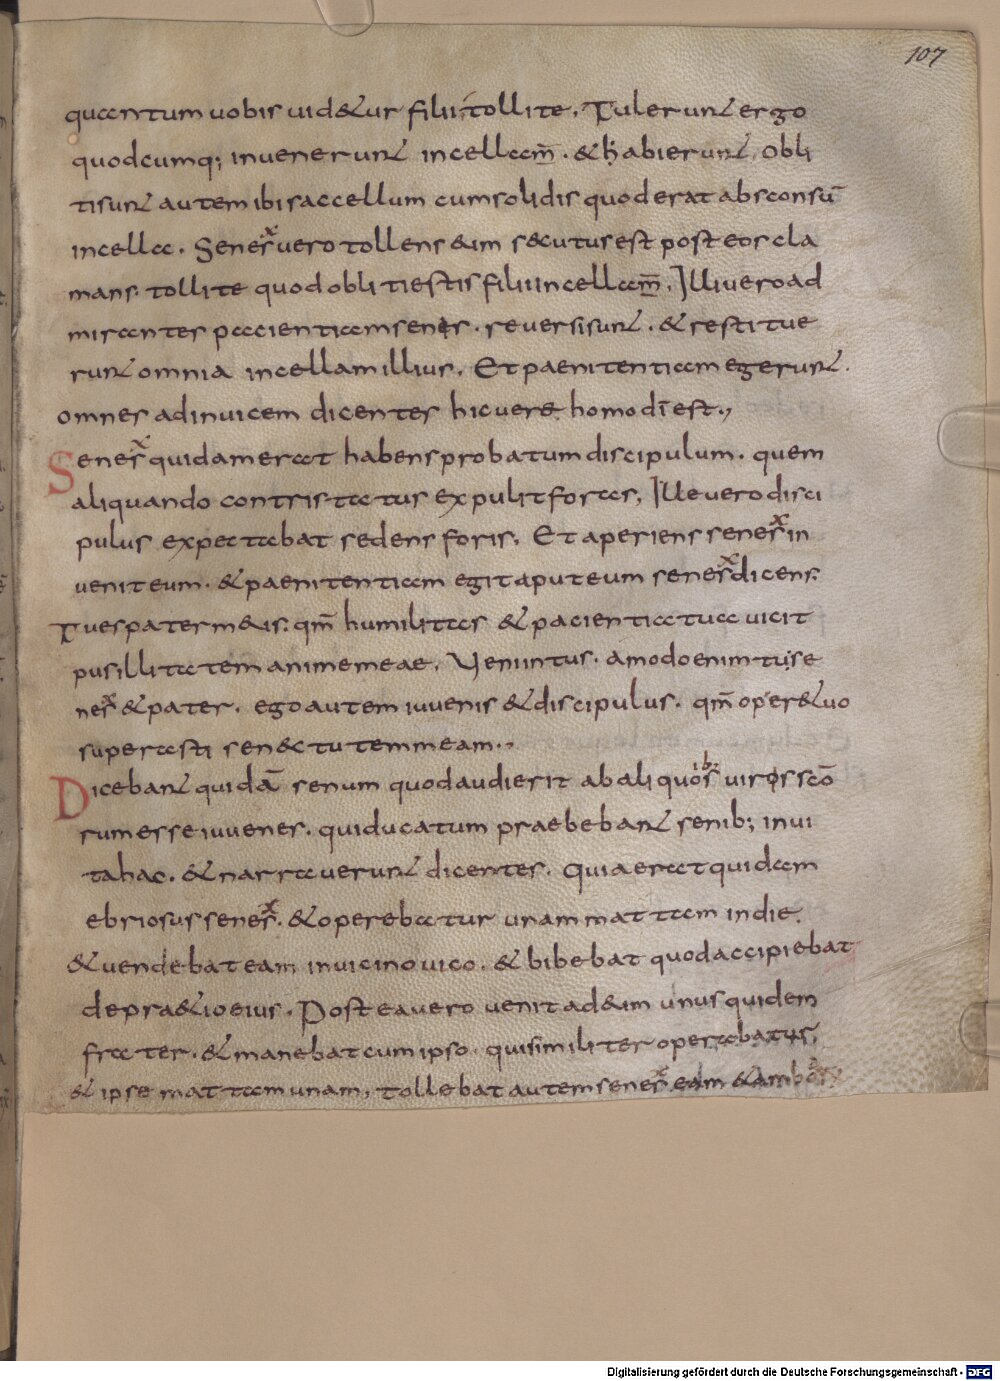 107
quantum uobis uidetur filii tollite. Tulerunt ergo
quodcumq; inuenerunt incellam̅. & habierunt, obli
tisunt autem ibi saccellum cumsolidis quoderat absconsū
incella. Senesx uero tollens &iam secutusest post eos cla
mans. tollite quod oblitiestis filii incellam̅, Illi uero ad
mirantes pacientiam senis. reuersisunt. & restitue
runt omnia incellam illius. Et paenitentiam egerunt.
omnes adinuicem dicentes hic uere homo dī est.,
Senesx quidam erat habens probatum discipulum. quem
aliquando contristatus expulit foras, Ille uero disci
pulus expectabat sedens foris. Et aperiens senesx in
uenit eum. & paenitentiam egit aput eum senesx dicens.
Tu es pater meus. qm̅ humilitas & pacientia tua uicit
pusillitatem anime meae. Ueni intus. amodo enim tu se
nesx & pater. ego autem iuuenis & discipulus. qm̅ opere tuo
superasti senectutem meam.,
Dicebant quidā senum quod audierit ab aliquosibz uiros scō
rum esse iuuenes. qui ducatum praebebant senib; inui
tahac. & narrauerunt dicentes. Quia erat quidam
ebriosus senesx. & operebatur unam mattam in die.
& uendebat eam in uicino uico. & bibebat quod accipiebat
de praetio eius. Postea uero uenit ad eum unus quidem
frater. & manebat cum ipso. qui similiter operabatur,
& ipse mattam unam, tollebat autem senesx eam & ambos
Digitalisierung gefördert durch die Deutsche Forschungsgemeinschaft - DFG